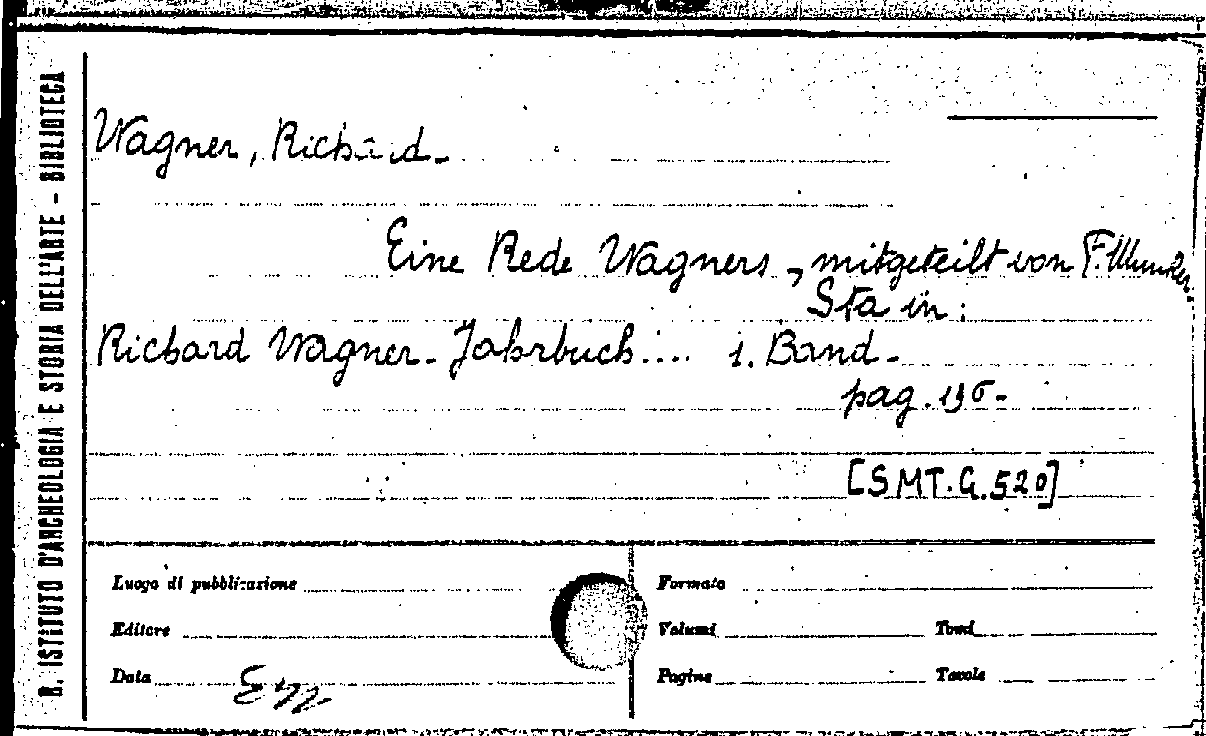 R. ISTITUTO D'ARCHEOLOGIA E STORIA DELL'ARTE - BIBLIOTECA
Wagner, Richard.
Eine Rede Wagners, mitgeteilt von F. Muncker.
Sta in:
Richard Wagner-Jahrbuch.... 1. Band.
pag. 196-
[SMT.G.520]
Luogo di pubblicazione
Formato
Editore
Volumi
Tomi
Data
Pagine
Tavole